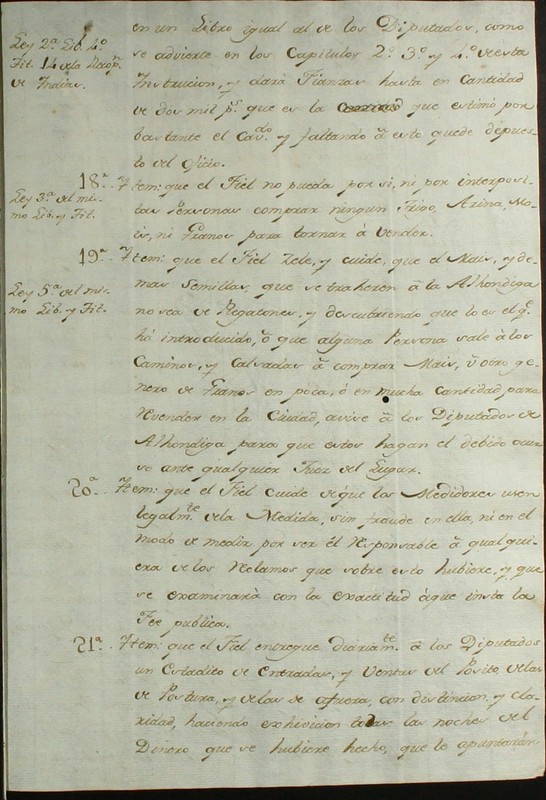 en un Libro igual al de los Diputados, como
Ley 2ª Lib. 4º
se advierte en los Capitulos 2º 3º y 4º de esta
Tit. 14 de la Recop.
Instrucion, y dará Fianzas hasta en Cantidad
de Indias.
de dos mil pˢ. que es la que estimó por
bastante el Cavᵈᵒ. y faltando á esto quede depues-
to del oficio.
18ª. Ytem: que el Fiel no pueda por si, ni por interposi-
Ley 3ª del mis-
mo Lib. y Tit.
tas Personas comprar ningun Trigo, Arina, Ma-
is, ni Granos para tornar á vender.
19ª. Ytem: que el Fiel Zele, y cuide, que el Mais, y de-
mas Semillas, que se traheren á la Alhondiga
Ley 5ª del mis-
mo Lib. y Tit.
no sea de Regatones, y descubriendo que lo es el q̃.
há introducido, ó que alguna Persona sale à los
Caminos, y Calzadas à comprar Mais, ù otro ge-
nero de Granos en poca, ó en mucha Cantidad para
Revender en la Ciudad, avise à los Diputados de
Alhondiga para que estos hagan el debido ocur-
so ante qualquier Juez del Lugar.
20ª. Ytem: que el Fiel cuide de que los Medidores usen
legalmᵗᵉ. de la Medida, sin fraude en ella, ni en el
modo de medir por ser él Responsable à qualqui-
era de los Reclamos que sobre esto hubiere, y que
se examinarà con la exactitud àque insta la
Fee publica.
21ª. Ytem: que el Fiel entregue diáriamᵗᵉ. à los Diputados
un Estadito de Entradas, y Ventas del Posito, delas
de Postura, y delas de afuera, con distincion, y cla-
ridad, haciendo exhivicion todas las noches del
Dinero que se hubiere hecho, que le apuntarán